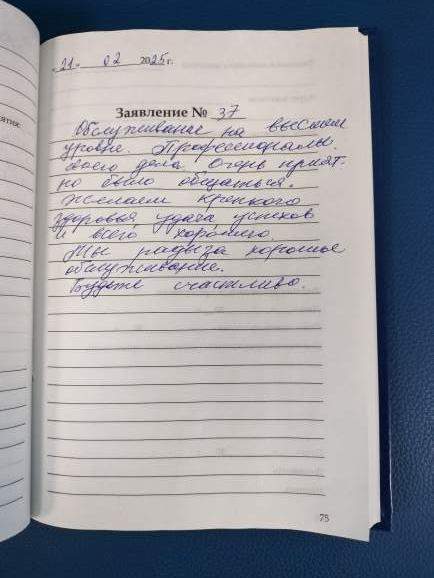 «21» 02 2025 г.
Заявление № 37
Обслуживание на высоком
уровне. Профессионалы.
своего дела. Очень прият-
но было общаться.
Желаем крепкого
здоровья удача успехов
и всего хорошего
Мы рады за хорошее
обслуживание.
Будьте счастливо.
75